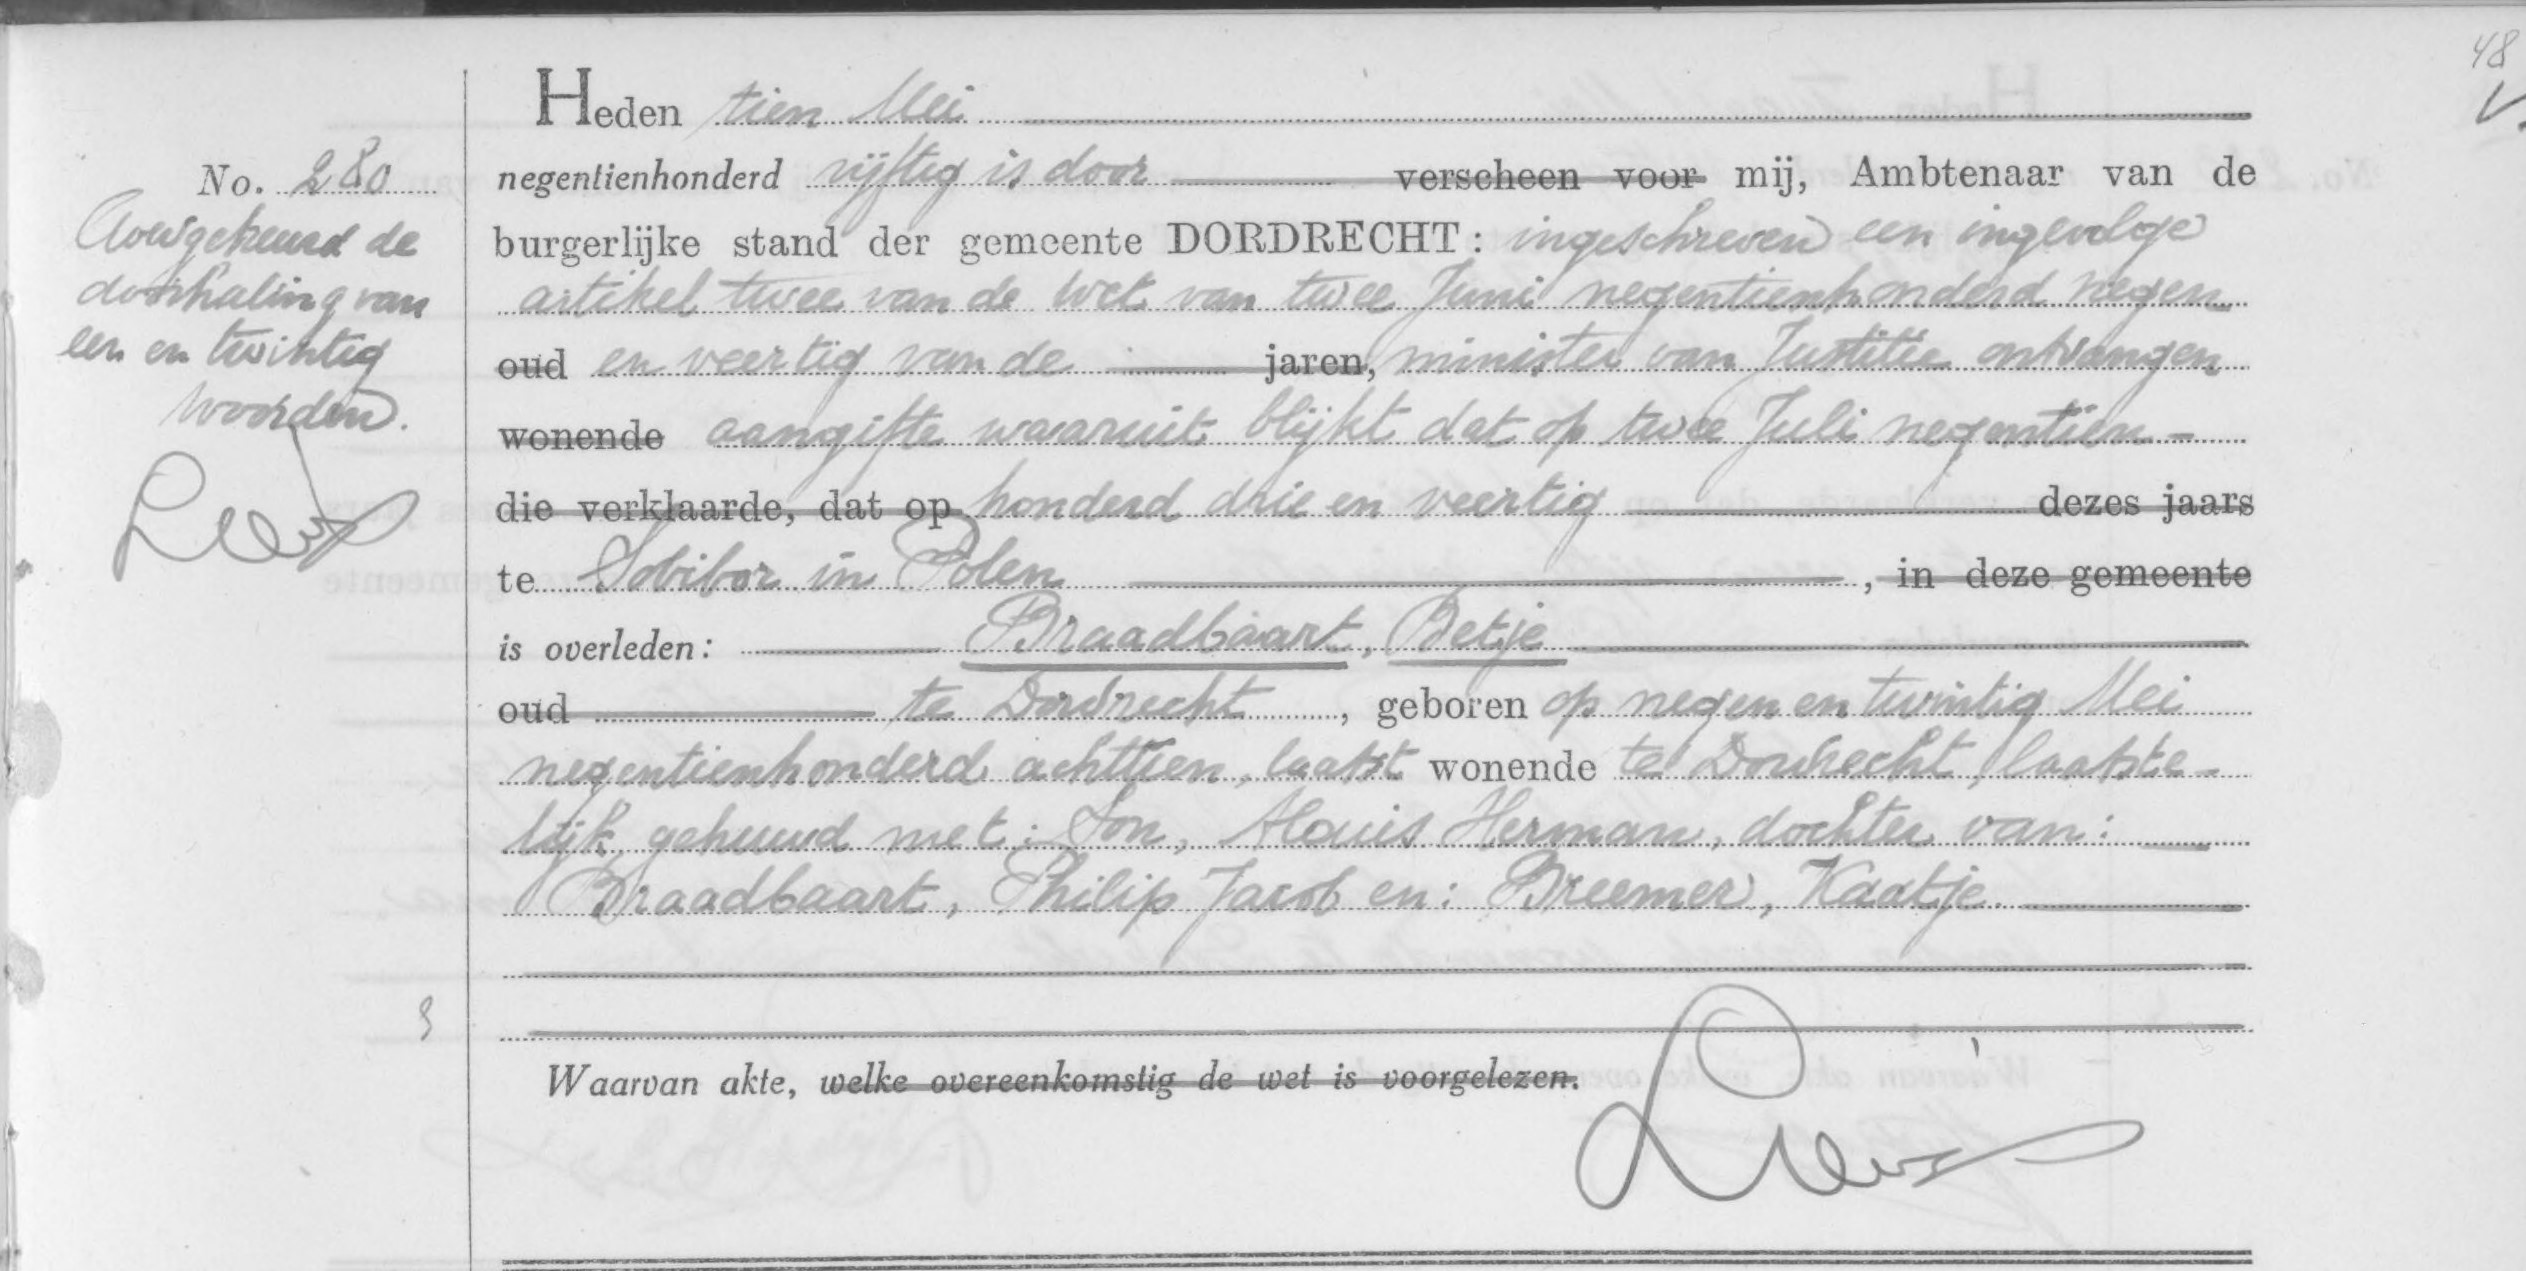 48
V.
Heden tien Mei
No. 280
negentienhonderd vijftig is door verscheen voor mij, Ambtenaar van de
Goedgekeurd de
doorhaling van
een en twintig
woorden.
burgerlijke stand der gemeente DORDRECHT: ingeschreven een ingevolge
artikel twee van de Wet van twee Juni negentienhonderd negen
oud en veertig van de jaren, minister van Justitie ontvangen
wonende aangifte waaruit blijkt dat op twee Juli negentien-
die verklaarde, dat op honderd drie en veertig dezes jaars
te Sobibor in Polen , in deze gemeente
is overleden: Braadbaart, Betje
oud te Dordrecht , geboren op negen en twintig Mei
negentienhonderd achttien, laatst wonende te Dordrecht, laatste-
lijk gehuwd met: Son, Mauis Herman, dochter van:
Braadbaart, Philip Jacob en: Breemer, Kaatje.
Waarvan akte, welke overeenkomstig de wet is voorgelezen.